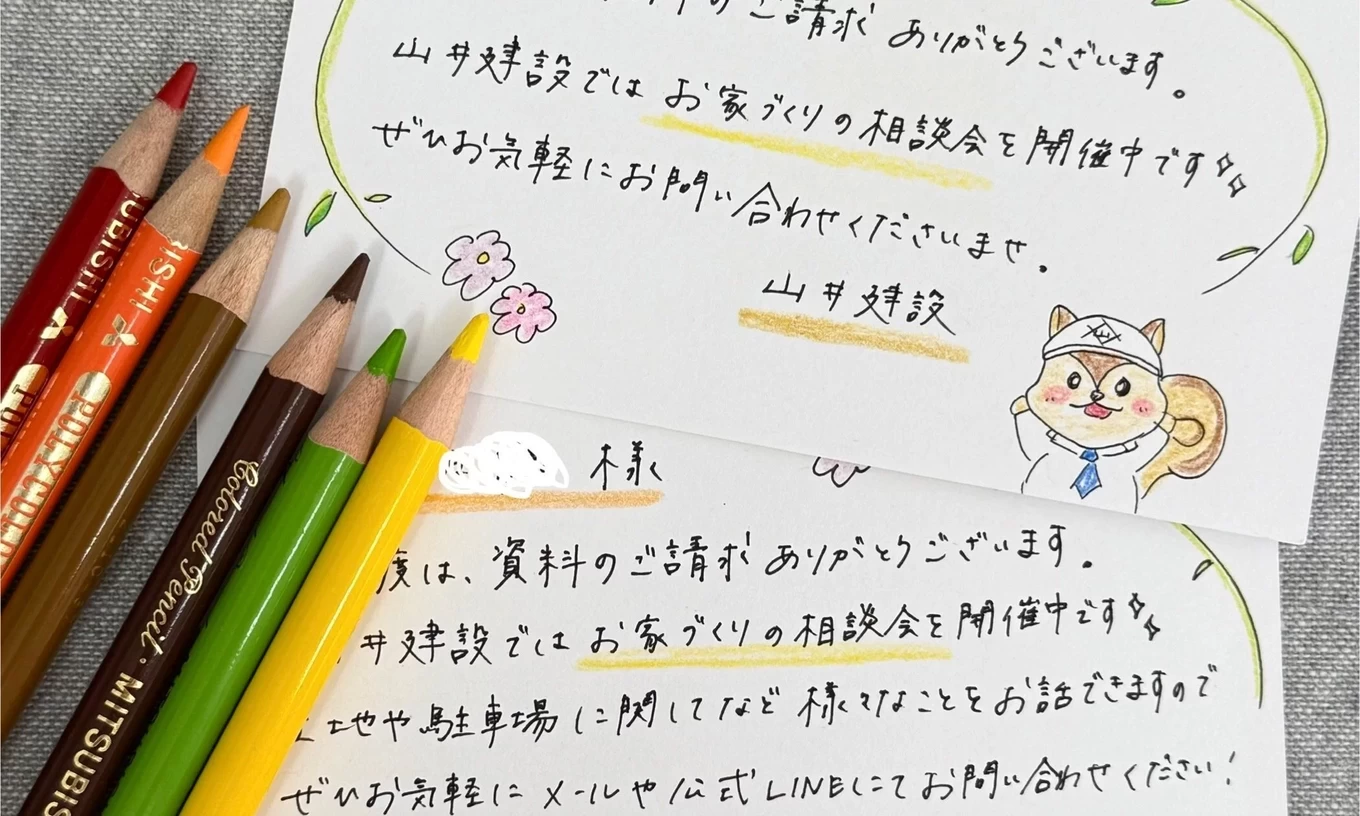 のご請求 ありがとうございます。
山井建設では お家づくりの相談会を開催中です
ぜひお気軽にお問い合わせくださいませ。
山井建設
様
度は、資料のご請求ありがとうございます。
井建設では お家づくりの相談会を開催中です
地や駐車場に関してなど 様々なことをお話できますので
ぜひお気軽に メールや公式LINEにてお問い合わせください!
UBISHI
POLYCOLO
ISHI
Colored Pencil · MITSUBIS